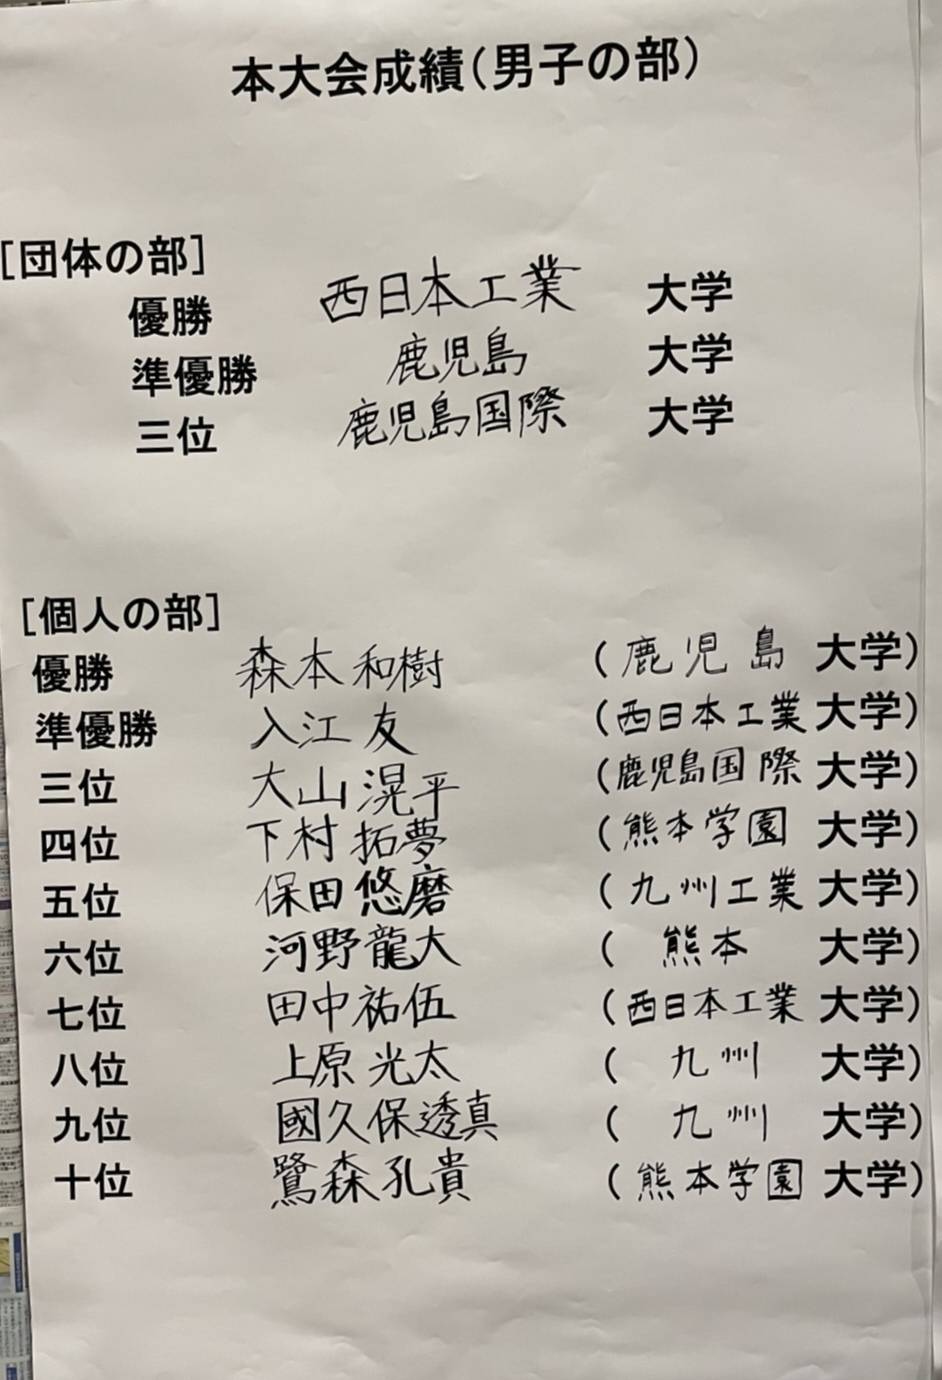 本大会成績(男子の部)
[団体の部]
優勝 西日本工業 大学
準優勝 鹿児島 大学
三位 鹿児島国際 大学
[個人の部]
優勝 森本 和樹 (鹿児島 大学)
準優勝 入江 友 (西日本工業 大学)
三位 大山 滉平 (鹿児島国際 大学)
四位 下村 拓夢 (熊本学園 大学)
五位 保田 悠磨 (九州工業 大学)
六位 河野 龍大 (熊本 大学)
七位 田中 祐伍 (西日本工業 大学)
八位 上原 光太 (九州 大学)
九位 國久保 透真 (九州 大学)
十位 鷺森 孔貴 (熊本学園 大学)